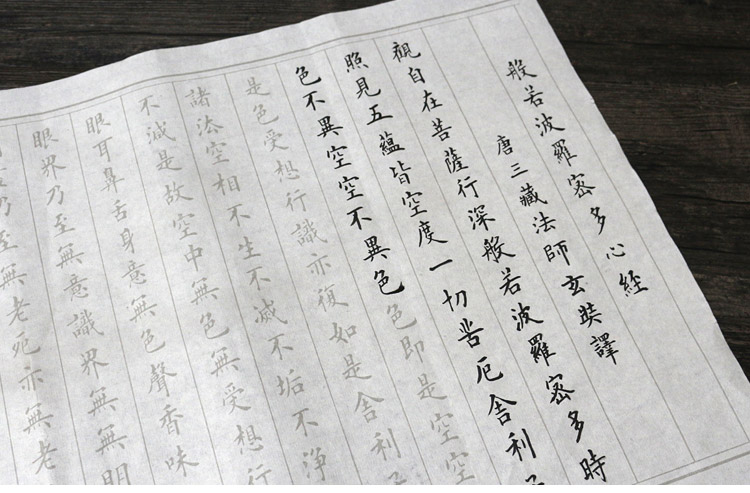 般若波羅密多心經
唐三藏法師玄奘譯
觀自在菩薩行深般若波羅密多時
照見五蘊皆空度一切苦厄舍利子
色不異空空不異色色即是空空
是色受想行識亦復如是舍利子
諸法空相不生不滅不垢不淨
不減是故空中無色無受想行
眼耳鼻舌身意無色聲香味
眼界乃至無意識界無無明
乃至無老死亦無老